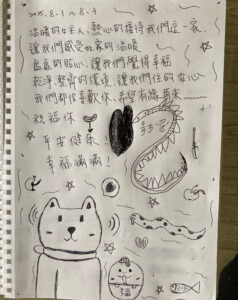 2025.8.1~8.3
溫暖的女主人,熱心的接待我們這一家
讓我們感受在家的溫暖
處處的貼心,讓我們覺得幸福
乾淨、整齊的環境,讓我們住的安心
我們都很喜歡你,希望有緣再來
祝福你
平安健康
幸福滿滿!
福